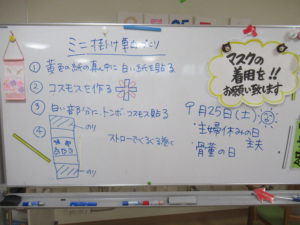 ミニ掛け軸作り
① 黄色の紙の真ん中に白い紙を貼る
② コスモスを作る
③ 白い部分に、トンボ コスモス貼る
④
のり
ストローでくるくる巻く
のり
マスクの
着用を!!
お願い致します
9月25日(土)
・主婦休みの日
主夫
・骨董の日